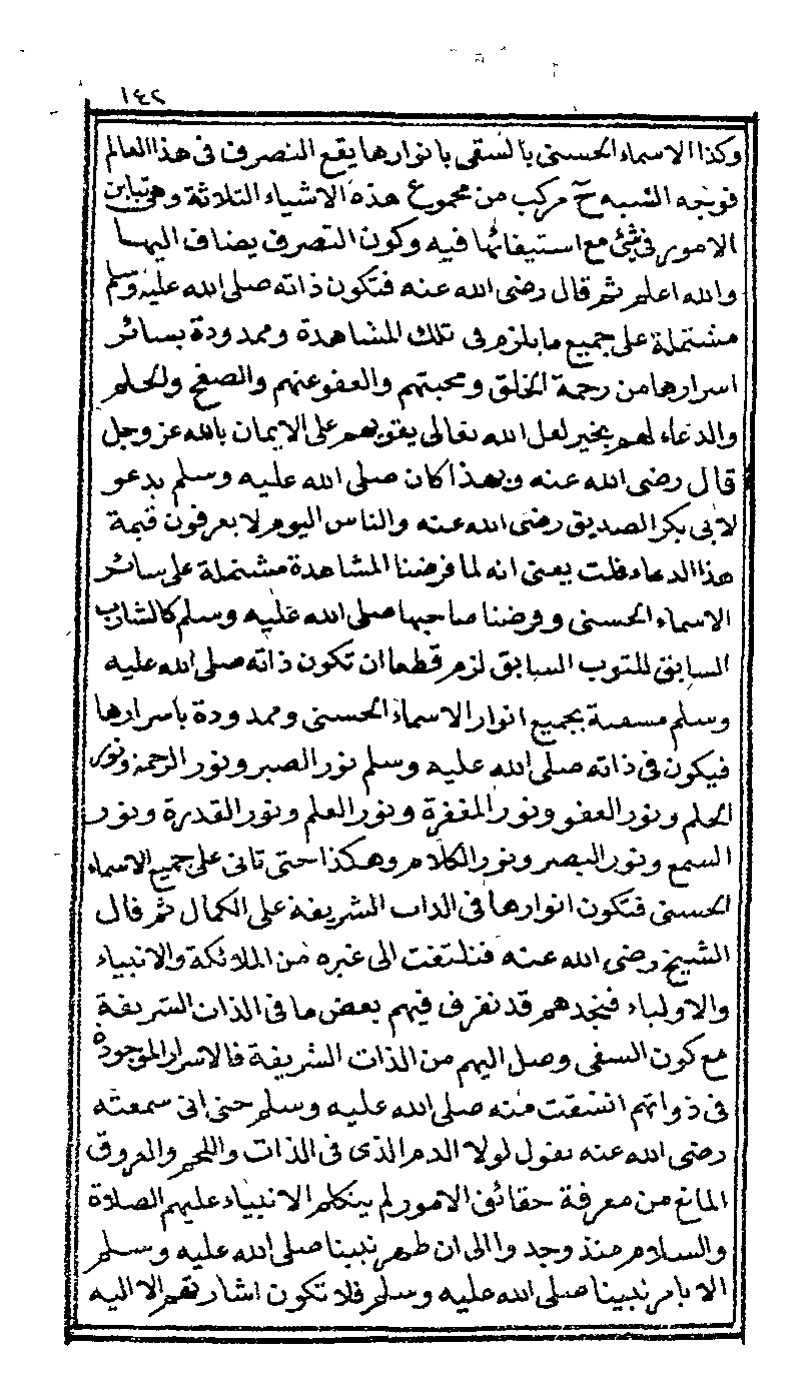 ١٤٢
وكذا الاسماء الحسنى بالسقى بانوارها يقع التصرف فى هذا العالم
فوجه الشبه ح مركب من مجموع هذه الاشياء الثلاثة وهى تباين
الامور فى شئ مع استيفائها فيه وكون التصرف يضاف اليها
والله اعلم ثم قال رضى الله عنه فتكون ذاته صلى الله عليه وسلم
مشتملة على جميع ما يلزم فى تلك المشاهدة وممدودة بسائر
اسرارها من رحمة الخلق ومحبتهم والعفو عنهم والصفح والحلم
والدعاء لهم بخير لعل الله تعالى يقويهم على الايمان بالله عز وجل
قال رضى الله عنه وبهذا كان صلى الله عليه وسلم يدعو
لابى بكر الصديق رضى الله عنه والناس اليوم لا يعرفون قيمة
هذا الدعاء قلت يعنى انه لما فرضنا المشاهدة مشتملة على سائر
الاسماء الحسنى وفرضنا صاحبها صلى الله عليه وسلم كالشارب
السابق للتوب السابق لزم قطعا ان تكون ذاته صلى الله عليه
وسلم مسقية بجميع انوار الاسماء الحسنى وممدودة باسرارها
فيكون فى ذاته صلى الله عليه وسلم نور الصبر ونور الرحمة ونور
الحلم ونور العفو ونور المغفرة ونور العلم ونور القدرة ونور
السمع ونور البصر ونور الكلام وهكذا حتى تاتى على جميع الاسماء
الحسنى فتكون انوارها فى الذات الشريفة على الكمال ثم قال
الشيخ رضى الله عنه فنلتفت الى غيره من الملائكة والانبياء
والاولياء فيجدهم قد تفرق فيهم بعض ما فى الذات الشريفة
مع كون السقى وصل اليهم من الذات الشريفة فالاسرار الموجودة
فى ذواتهم انشقت منه صلى الله عليه وسلم حتى انى سمعته
رضى الله عنه يقول لولا الدم الذى فى الذات واللحم والعروق
المانع من معرفة حقائق الامور لم يتكلم الانبياء عليهم الصلاة
والسلام منذ وجدوا الى ان ظهر نبينا صلى الله عليه وسلم
الا بامر نبينا صلى الله عليه وسلم فلا تكون اشارتهم الا اليه